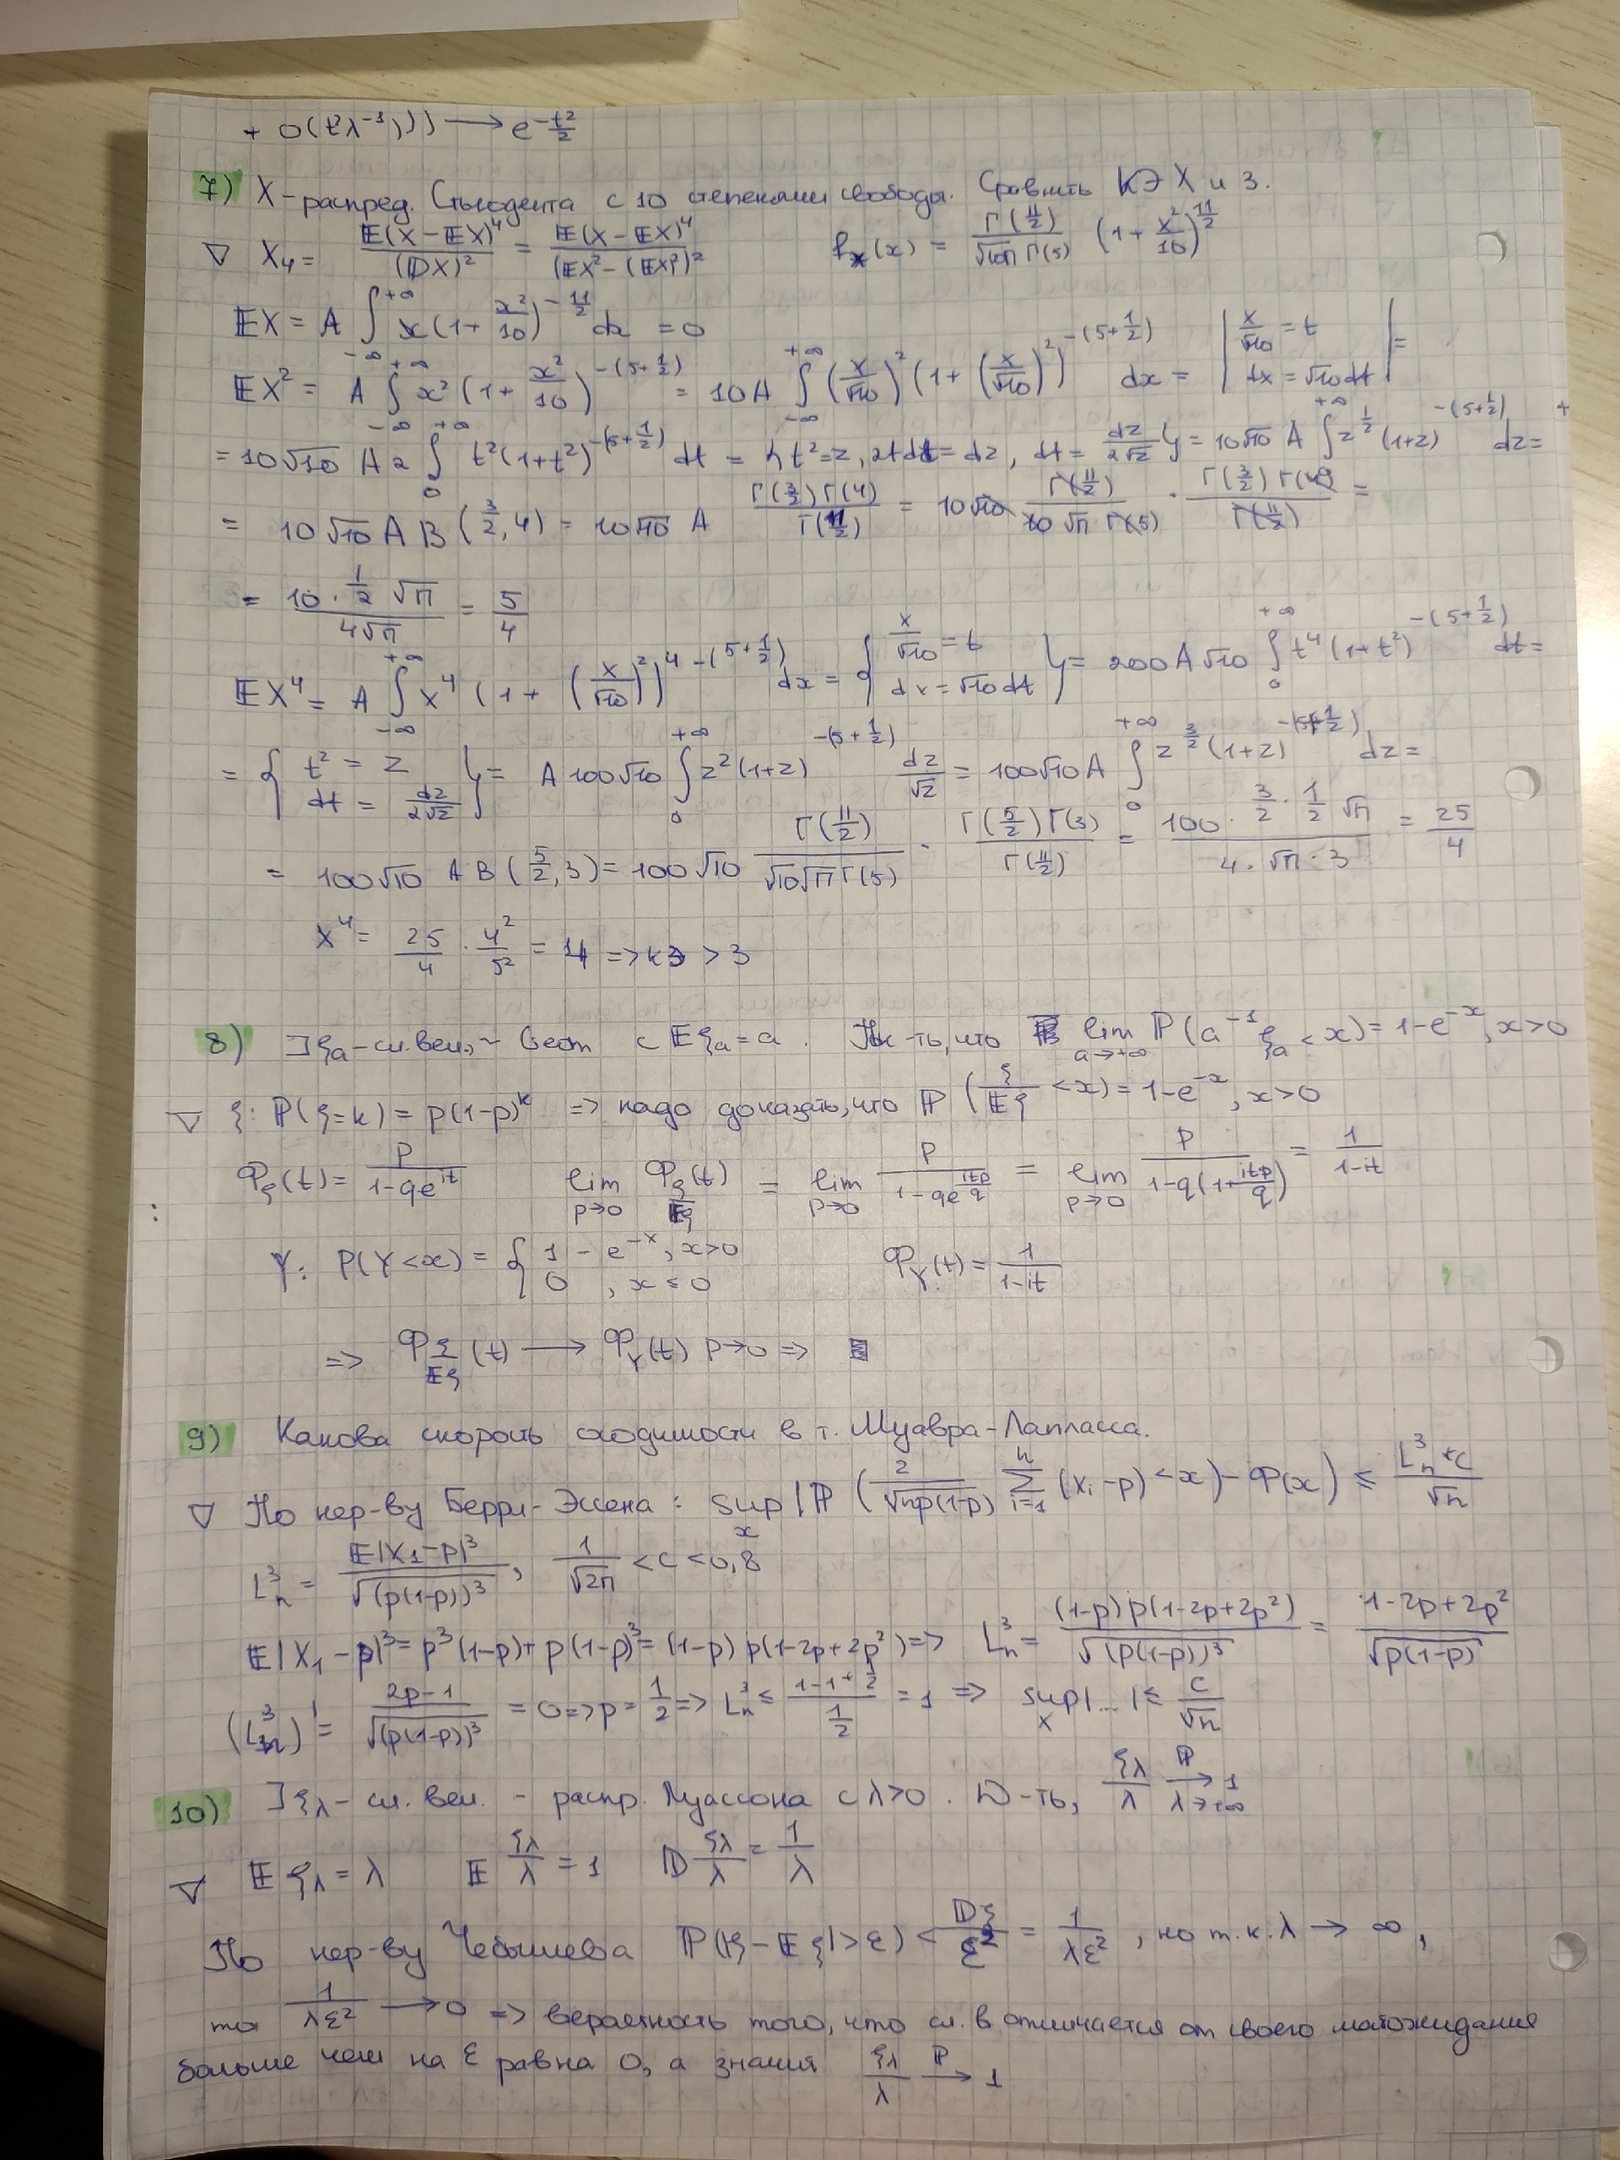 + O(t²λ⁻¹))) ⟶ e^{-t²/2}
7) X – распред. Стьюдента с 10 степенями свободы. Сравнить КЭ X и 3.
▽ X₄ = E(X − EX)⁴ / (DX)² = E(X − EX)⁴ / (EX² − (EX)²)² f_x(x) = Γ(11/2) / (√10π Γ(5)) (1 + x²/10)^{11/2}
EX = A ∫_{-∞}^{+∞} x(1 + x²/10)^{-11/2} dx = 0
EX² = A ∫_{-∞}^{+∞} x²(1 + x²/10)^{-(5+1/2)} = 10A ∫_{-∞}^{+∞} (x/√10)² (1 + (x/√10)²)^{-(5+1/2)} dx = | x/√10 = t, dx = √10dt | =
= 10√10 A 2 ∫_0^{+∞} t²(1+t²)^{-(5+1/2)} dt = {t² = z, 2tdt = dz, dt = dz/2√z} = 10√10 A ∫^{+∞} z^{1/2} (1+z)^{-(5+1/2)} dz =
= 10√10 A B(3/2, 4) = 10√10 A Γ(3/2)Γ(4)/Γ(11/2) = 10√10 Γ(11/2)/(√10 √π Γ(5)) · Γ(3/2)Γ(4)/Γ(11/2) =
= 10 · 1/2 √π / 4√π = 5/4
EX⁴ = A ∫_{-∞}^{+∞} x⁴ (1 + (x/√10)²)^{4 -(5+1/2)} dx = { x/√10 = t, dx = √10dt } = 200A√10 ∫_0^{+∞} t⁴(1+t²)^{-(5+1/2)} dt =
= { t² = z, dt = dz/2√z } = A 100√10 ∫_0^{+∞} z²(1+z)^{-(5+1/2)} dz/√z = 100√10 A ∫_0^{+∞} z^{3/2} (1+z)^{-(5+1/2)} dz =
= 100√10 A B(5/2, 3) = 100√10 Γ(11/2)/(√10√πΓ(5)) · Γ(5/2)Γ(3)/Γ(11/2) = 100 · 3/2 · 1/2 √π / 4·√π·3 = 25/4
X⁴ = 25/4 · 4²/5² = 4 => кэ > 3
8) ]ξ_a – сл. вел., ~ Geom с Eξ_a = a. Док-ть, что lim_{a→+∞} P(a⁻¹ξ_a < x) = 1 − e^{-x}, x>0
▽ ξ: P(ξ=k) = p(1−p)^k => надо доказать, что P(ξ/Eξ < x) = 1 − e^{-x}, x>0
Φ_ξ(t) = p/(1−qe^{it}) lim_{p→0} Φ_{ξ/Eξ}(t) = lim_{p→0} p/(1−qe^{itp/q}) = lim_{p→0} p/(1−q(1+itp/q)) = 1/(1−it)
Y: P(Y<x) = { 1 − e^{-x}, x>0; 0, x≤0 Φ_Y(t) = 1/(1−it)
=> Φ_{ξ/Eξ}(t) ⟶ Φ_Y(t) p→0 =>
9) Какова скорость сходимости в т. Муавра-Лапласса.
▽ По нер-ву Берри-Эссена: sup_x |P(2/√np(1−p) Σ_{i=1}^n (X_i − p) < x) − Φ(x)| ≤ L_n³ * C / √n
L_n³ = E|X₁−p|³ / √(p(1−p))³, 1/√2π < C < 0,8
E|X₁ − p|³ = p³(1−p) + p(1−p)³ = (1−p)p(1−2p+2p²) => L_n³ = (1−p)p(1−2p+2p²)/√(p(1−p))³ = 1−2p+2p²/√p(1−p)
(L_n³)' = 2p−1/√(p(1−p))³ = 0 => p = 1/2 => L_n³ ≤ 1−1+1/2 / 1/2 = 1 => sup_x |...| ≤ C/√n
10) ]ξ_λ – сл. вел. – распр. Пуассона с λ>0. D-ть, ξ_λ/λ ⟶^P_{λ→+∞} 1
▽ Eξ_λ = λ E ξ_λ/λ = 1 D ξ_λ/λ = 1/λ
По нер-ву Чебышева P(|ξ − Eξ| > ε) < Dξ/ε² = 1/λε², но т.к. λ → ∞,
то 1/λε² ⟶ 0 => вероятность того, что сл. в отличается от своего матожидания
больше чем на ε равна 0, а значит ξ_λ/λ ⟶^P 1